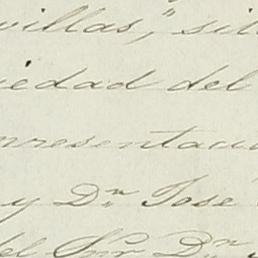 villas", sit
iedad del
presentacio
y Dn. Jose
del Sor. Dn.